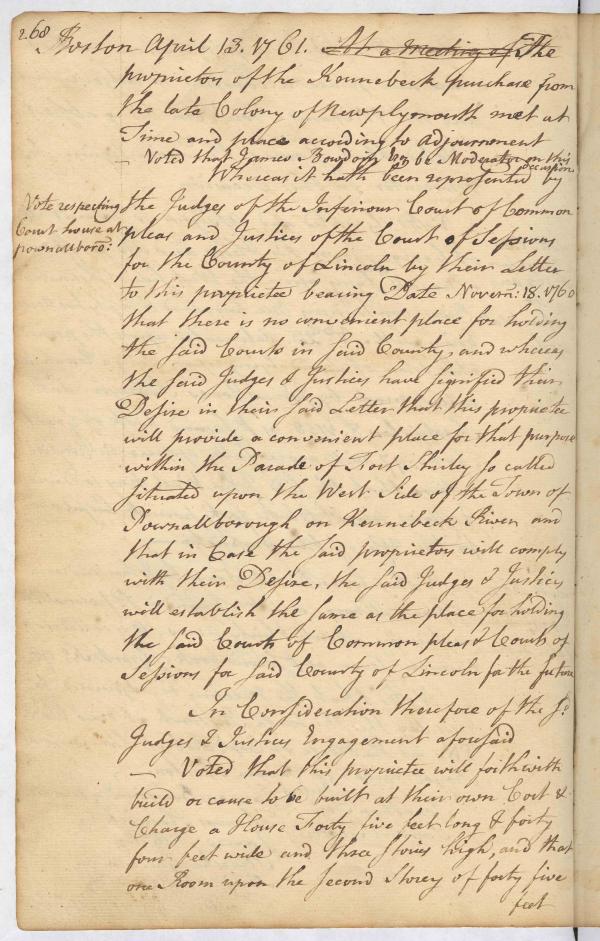 268
Boston April 13. 1761. At a meeting of The
proprietors of the Kennebeck purchase from
the late Colony of Newplymouth met at
Time and place according to adjournment
— Voted that James Bowdoin be Moderator on this occasion
Whereas it hath been represented by
Vote respecting
Court house at
pownallboro:
the Judges of the Inferiour Court of Common
pleas and Justices of the Court of Sessions
for the County of Lincoln by their Letter
to this proprietee bearing Date Novem: 18. 1760
that there is no convenient place for holding
the said Courts in said County, and whereas
the said Judges & Justices have signified their
Desire in their said Letter that this proprietee
will provide a convenient place for that purpose
within the Parade of Fort Shirley so called
situated upon the West Side of the Town of
Pownallborough on Kennebeck River and
that in Case the said proprietors will comply
with their Desire, the said Judges & Justices
will establish the same as the place for holding
the said Courts of Common pleas & Courts of
Sessions for said County of Lincoln for the future
In Consideration therefore of the sd.
Judges & Justices Engagement aforesaid
— Voted that this proprietee will forthwith
build or cause to be built at their own Cost &
Charge a House Forty five feet long & forty
four feet wide and three stories high, and that
one Room upon the second Storey of forty five
feet